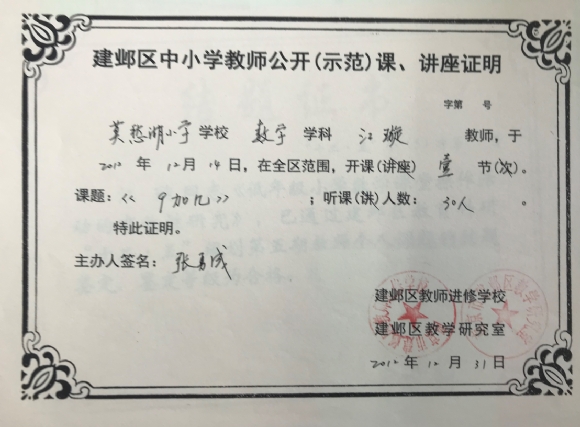 建邺区中小学教师公开(示范)课、讲座证明
字第 号
莫愁湖小学 学校 数学 学科 江璇 教师，于
2012 年 12 月 14 日，在全区范围，开课(讲座) 壹 节(次)。
课题：《 9加几 》；听课(讲)人数：30人 。
特此证明。
主办人签名：张勇成
建邺区教师进修学校
建邺区教学研究室
2012 年 12 月 31 日